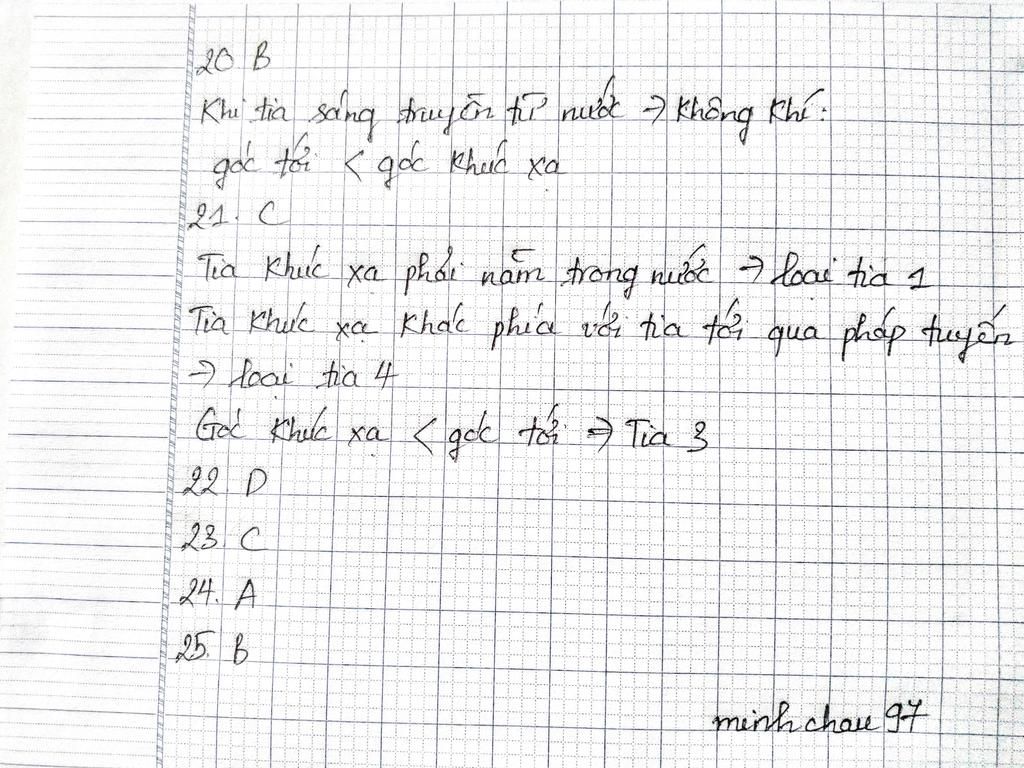 20 B
Khi tia sáng truyền từ nước → không khí:
góc tới < góc khúc xạ
21. C
Tia khúc xạ phải nằm trong nước → loại tia 1
Tia khúc xạ khác phía với tia tới qua pháp tuyến
→ loại tia 4
Góc khúc xạ < góc tới ⇒ Tia 3
22. D
23. C
24. A
25. B
minhchau97